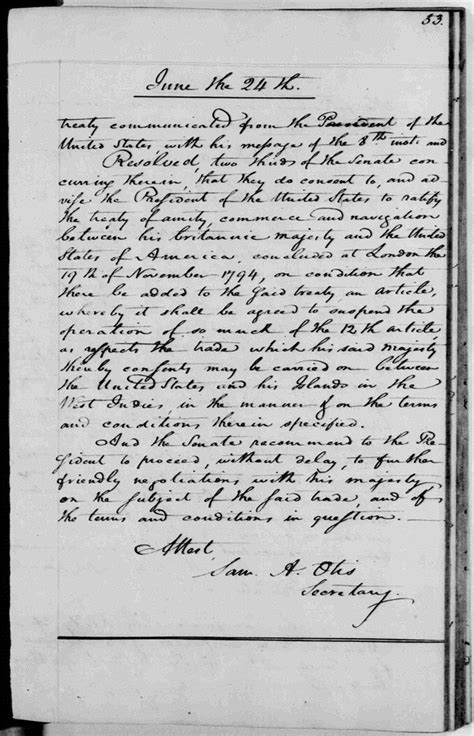 53.
June the 24th.
treaty communicated from the President of the
United States with his message of the 8th inst: and
Resolved, two thirds of the Senate con-
curring therein, that they do consent to, and ad-
vise the President of the United States to ratify
the treaty of amity, commerce and navigation
between his britannic majesty and the United
States of America, concluded at London the
19th of November 1794, on condition that
there be added to the said treaty an article,
whereby it shall be agreed to suspend the
operation of so much of the 12th article
as respects the trade which his said majesty
thereby consents may be carried on between
the United States and his Islands in the
West Indies, in the manner & on the terms
and conditions therein specified.
And the Senate recommend to the Pre-
sident to proceed, without delay, to further
friendly negotiations with his majesty
on the subject of the said trade, and of
the terms and conditions in question.
Attest,
Sam. A. Otis
Secretary.